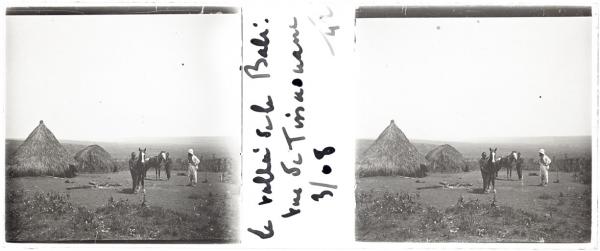 la vallée de la Bali.
vue de Tissaouani
3/08
42